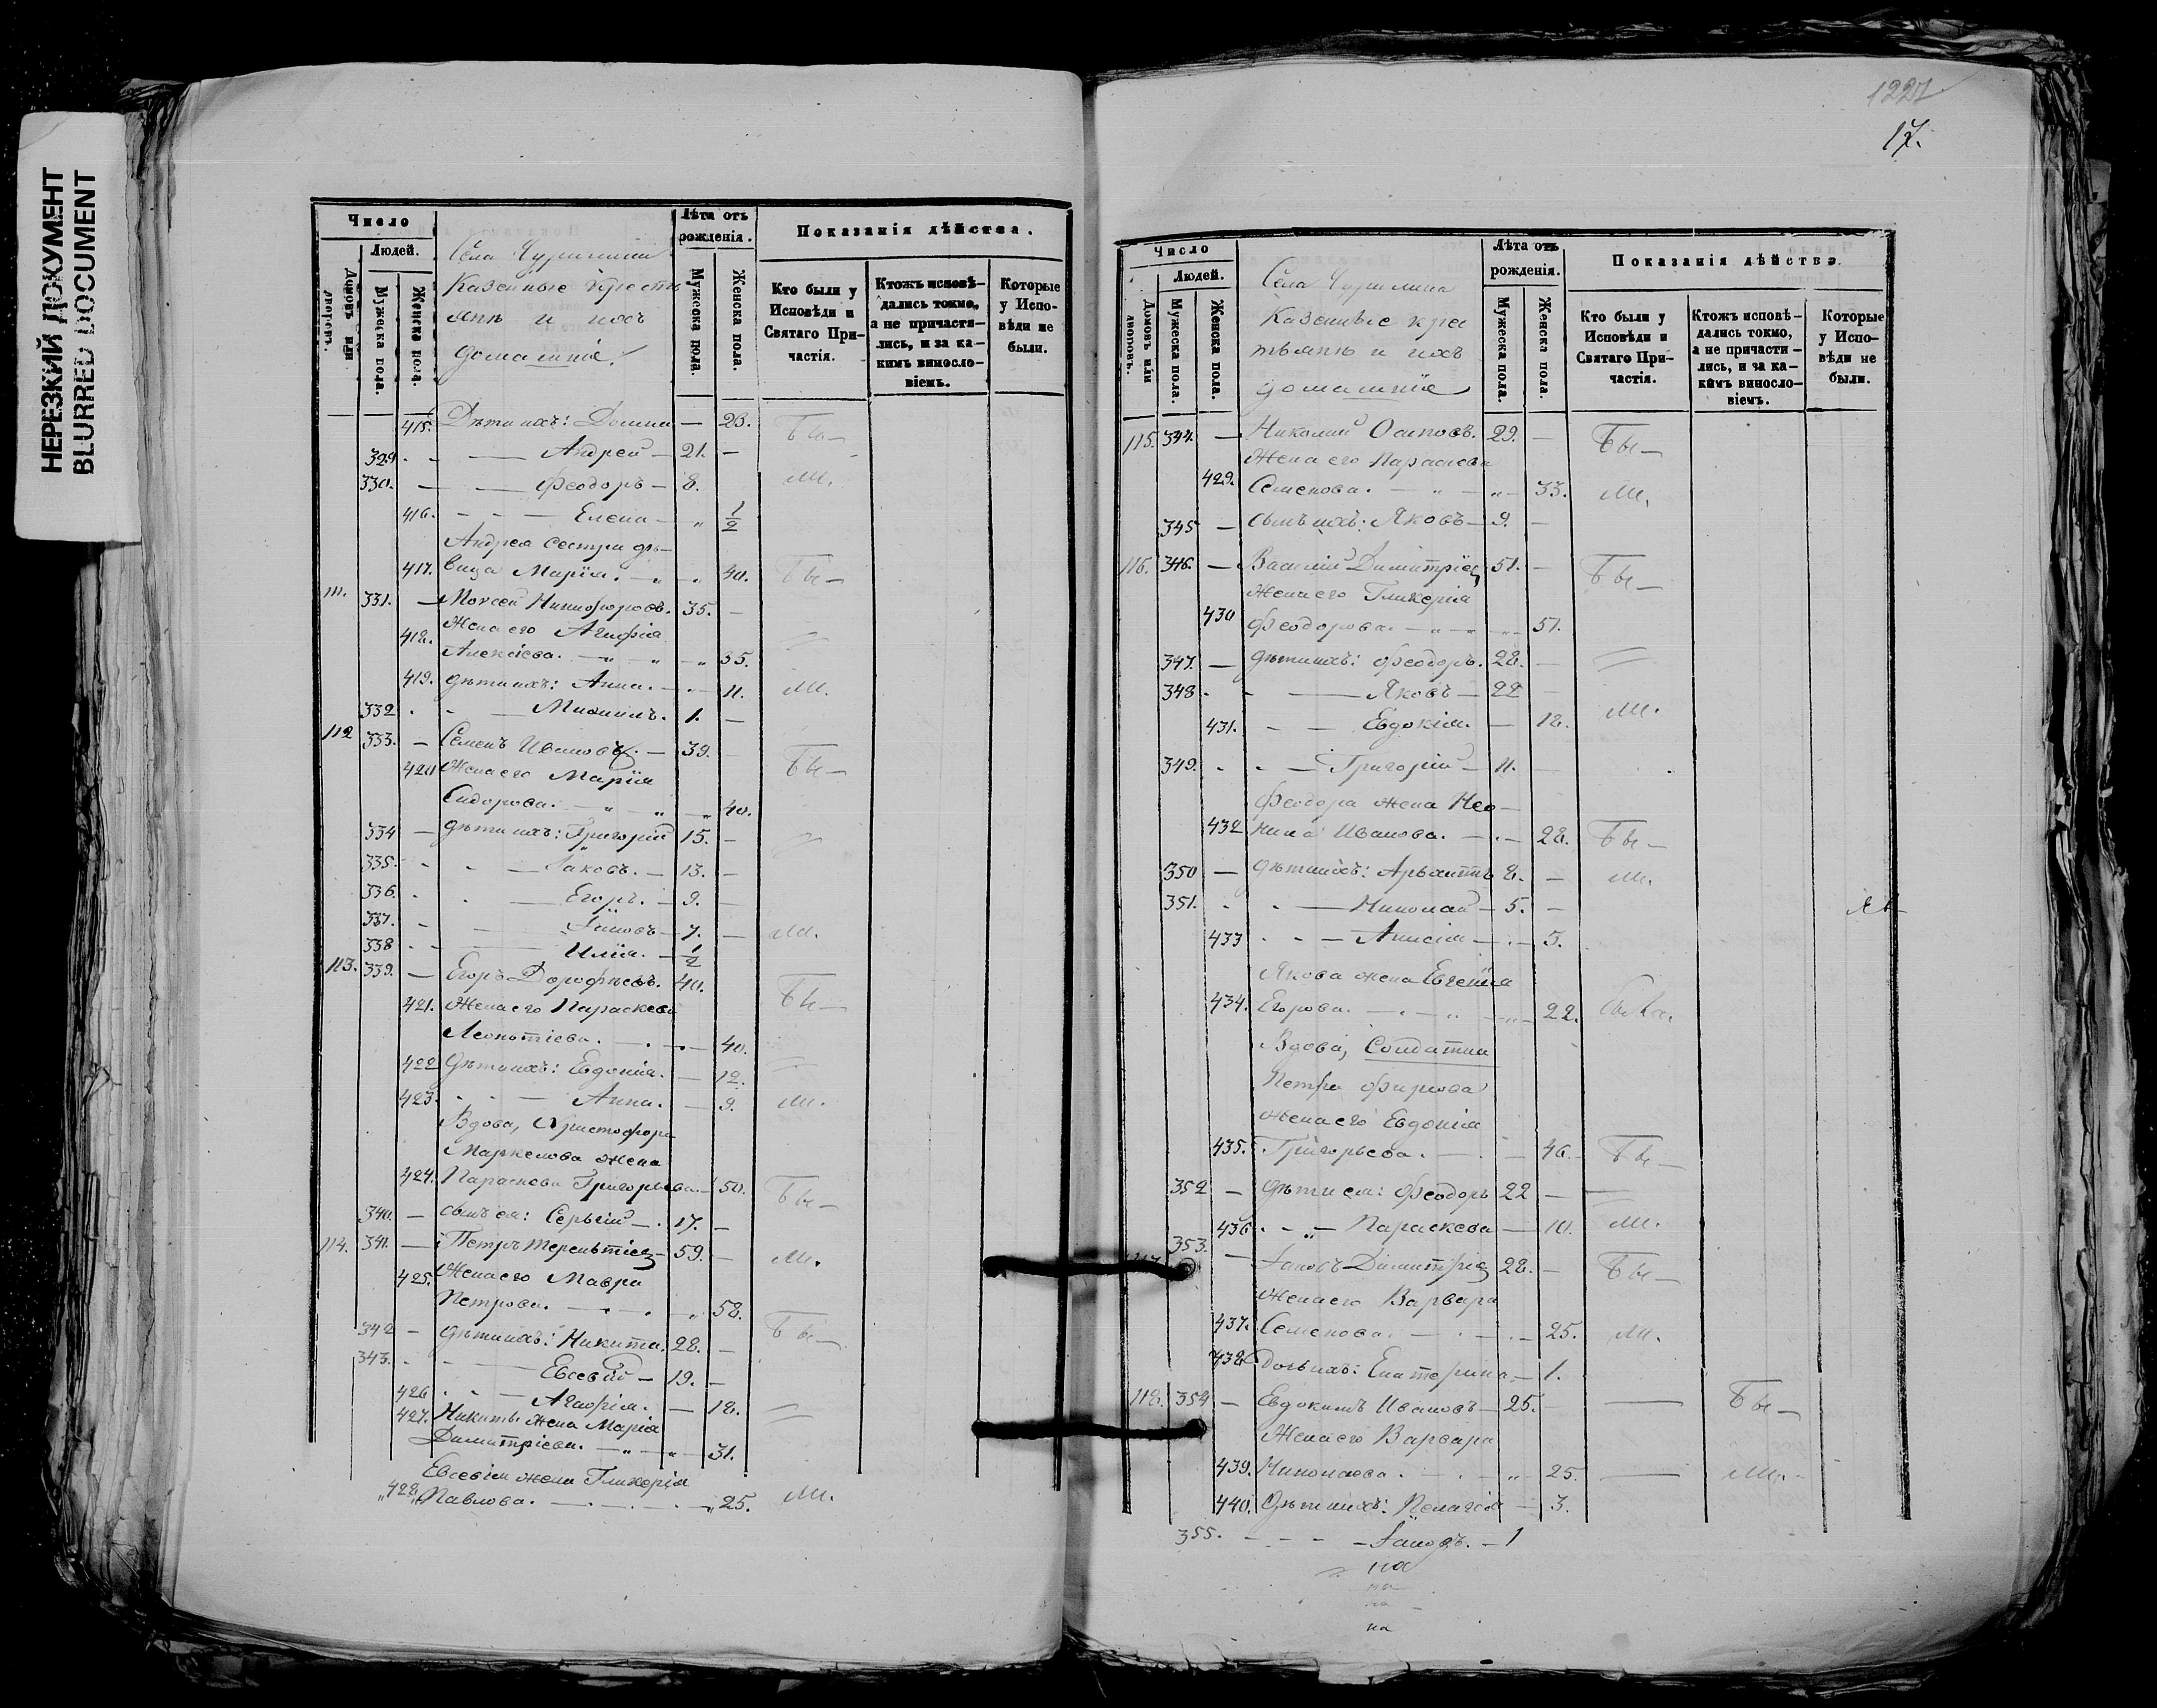 НЕРЕЗКИЙ ДОКУМЕНТ
BLURRED DOCUMENT
Число
Людей.
Домовъ или дворовъ.
Мужеска пола.
Женска пола.
Села Чурилина
Казенные крестьяне и ихъ
домашніе
Лѣта отъ рожденія.
Мужеска пола.
Женска пола.
Показанія дѣйства.
Кто были у Исповѣди и Святаго Причастія.
Ктожъ исповѣдались токмо, а не причастились, и за какимъ винословіемъ.
Которые у Исповѣди не были.
415. Дѣти ихъ: 23. Бы—
329 — Андрей — 21. —
330. — Феодоръ — 8. м.
416. — Елена — „ 1/2
Андрея сестра дѣ—
417. вица Марія. — „ 40. Бы—
111. 331. — Моѵсей Никифоровъ. 35. —
Жена его Агафія
418. Алексіева. — „ „ 35.
419. дѣти ихъ: Анна. — 11. м.
332 — 1. —
112 333. — Семенъ Ивановъ. — 39. —
420 Жена его Марія Бы—
Сидорова. — „ „ 40.
334 — дѣти ихъ: Григорій 15. —
335. — Іаковъ. — 13. —
336. — Егоръ. — 9. —
337. — 7. — м.
338 — Илія. — 1/2
113. 339. — Егоръ Дорофѣевъ. 40.
421. Жена его Параскева Бы—
Леонтіева. — 40.
422 Дѣти ихъ: Евдокія. — 12.
423. — Анна. — 9. м.
Вдова, Христофора
Маркелова жена
424. Параскева Григорьева. — 50. Бы—
340. — сынъ ея: Сергій — 17. —
114. 341. — Петръ Терентіевъ — 59. — м.
Жена его Мавра
425. Петрова. — 58.
342 — дѣти ихъ: Никита. 28. — Бы—
343. — Евсевій — 19. —
426 — Агафія. — 18.
427. Никиты жена Марія
Димитріева. — „ 31.
Евсевія жена Гликерія
„428„ Павлова. — „ 25. м.
1227
17.
Число
Людей.
Домовъ или дворовъ.
Мужеска пола.
Женска пола.
Села Чурилина
Казенные крес
тьяне и ихъ
домашніе
Лѣта отъ рожденія.
Мужеска пола.
Женска пола.
Показанія дѣйства.
Кто были у Исповѣди и Святаго Причастія.
Ктожъ исповѣдались токмо, а не причастились, и за какимъ винословіемъ.
Которые у Исповѣди не были.
115. 344. — Николай Осиповъ. 29. — Бы—
Жена его Параскева
429. Семенова. — „ — „ 33. м.
345 — сынъ ихъ: Яковъ — 9. —
116. 346. — Василій Димитріев 51. — Бы—
Жена его Гликерія
430 Феодорова. — „ 51.
347. — дѣти ихъ: Феодоръ. 28. —
348. — Яковъ — 22 —
431. — Евдокія. — 18. м.
349. — Григорій — 11. —
Феодора жена Нео—
432 нила Иванова. — 28. Бы—
350 — дѣти ихъ: 8. — м.
351. — Николай — 5. —
433 — Анисія — 3.
Якова жена Евгенія
434. Егорова. — „ 22.
Вдова, Солдатка
Петра Фирсова
Жена его Евдокія
435. Григорьева. — 46. Бы—
352 — дѣти ея: Феодоръ 22 —
436. — Параскева — 10. м.
353. — Іаковъ Димитріев 28. — Бы—
Жена его Варвара
437. Семенова. — 25. м.
438 дочь ихъ: Екатерина — 1.
118. 354 — Евдокимъ Ивановъ — 25. — Бы—
Жена его Варвара
439. Николаева. — „ 25. — м.
440. Дѣти ихъ: Пелагія — 3.
355. — Іаковъ. — 1
на
на